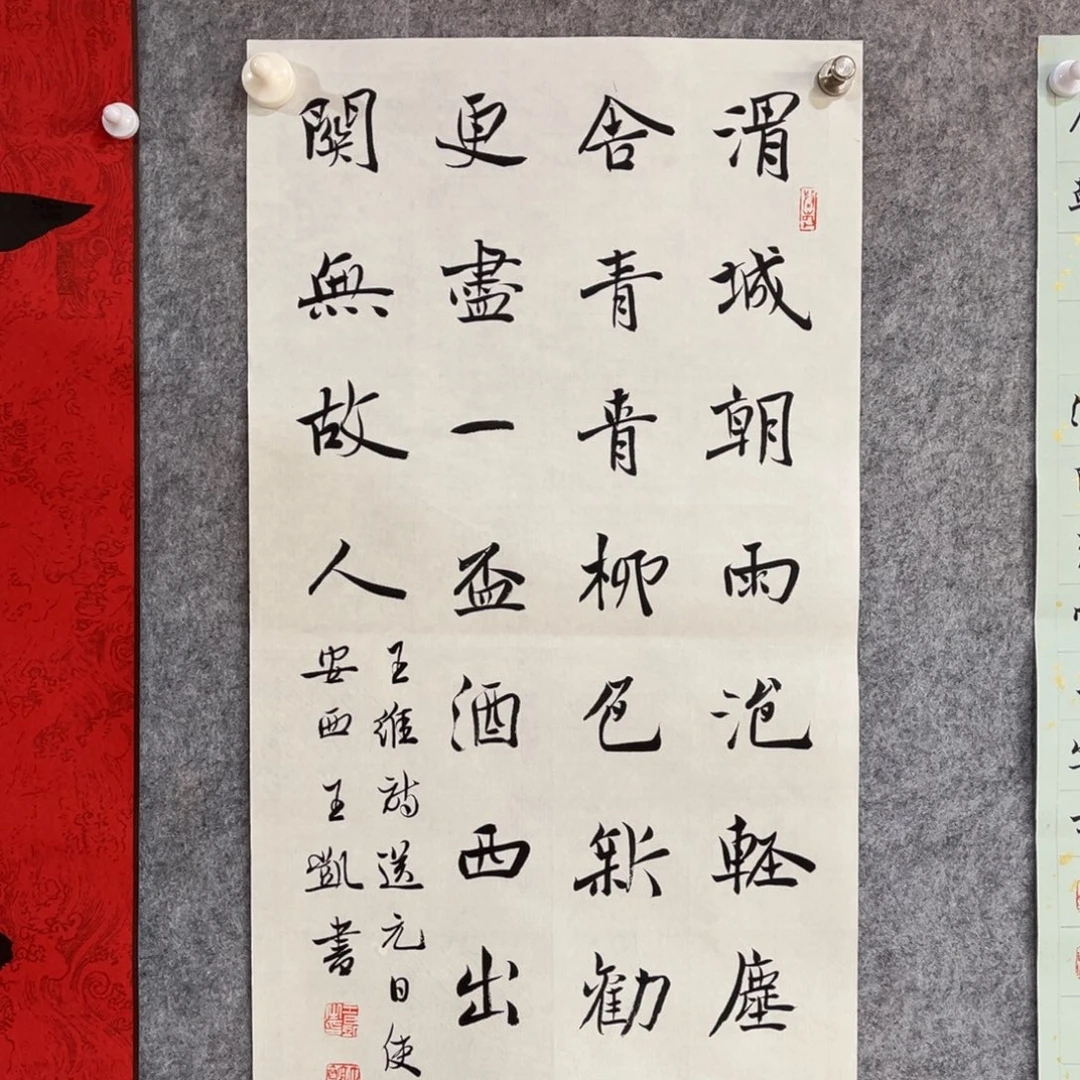 渭城朝雨浥軽塵
舍青青柳色新勸
更盡一盃酒西出
關無故人
王維詩送元日使
安西王凱書